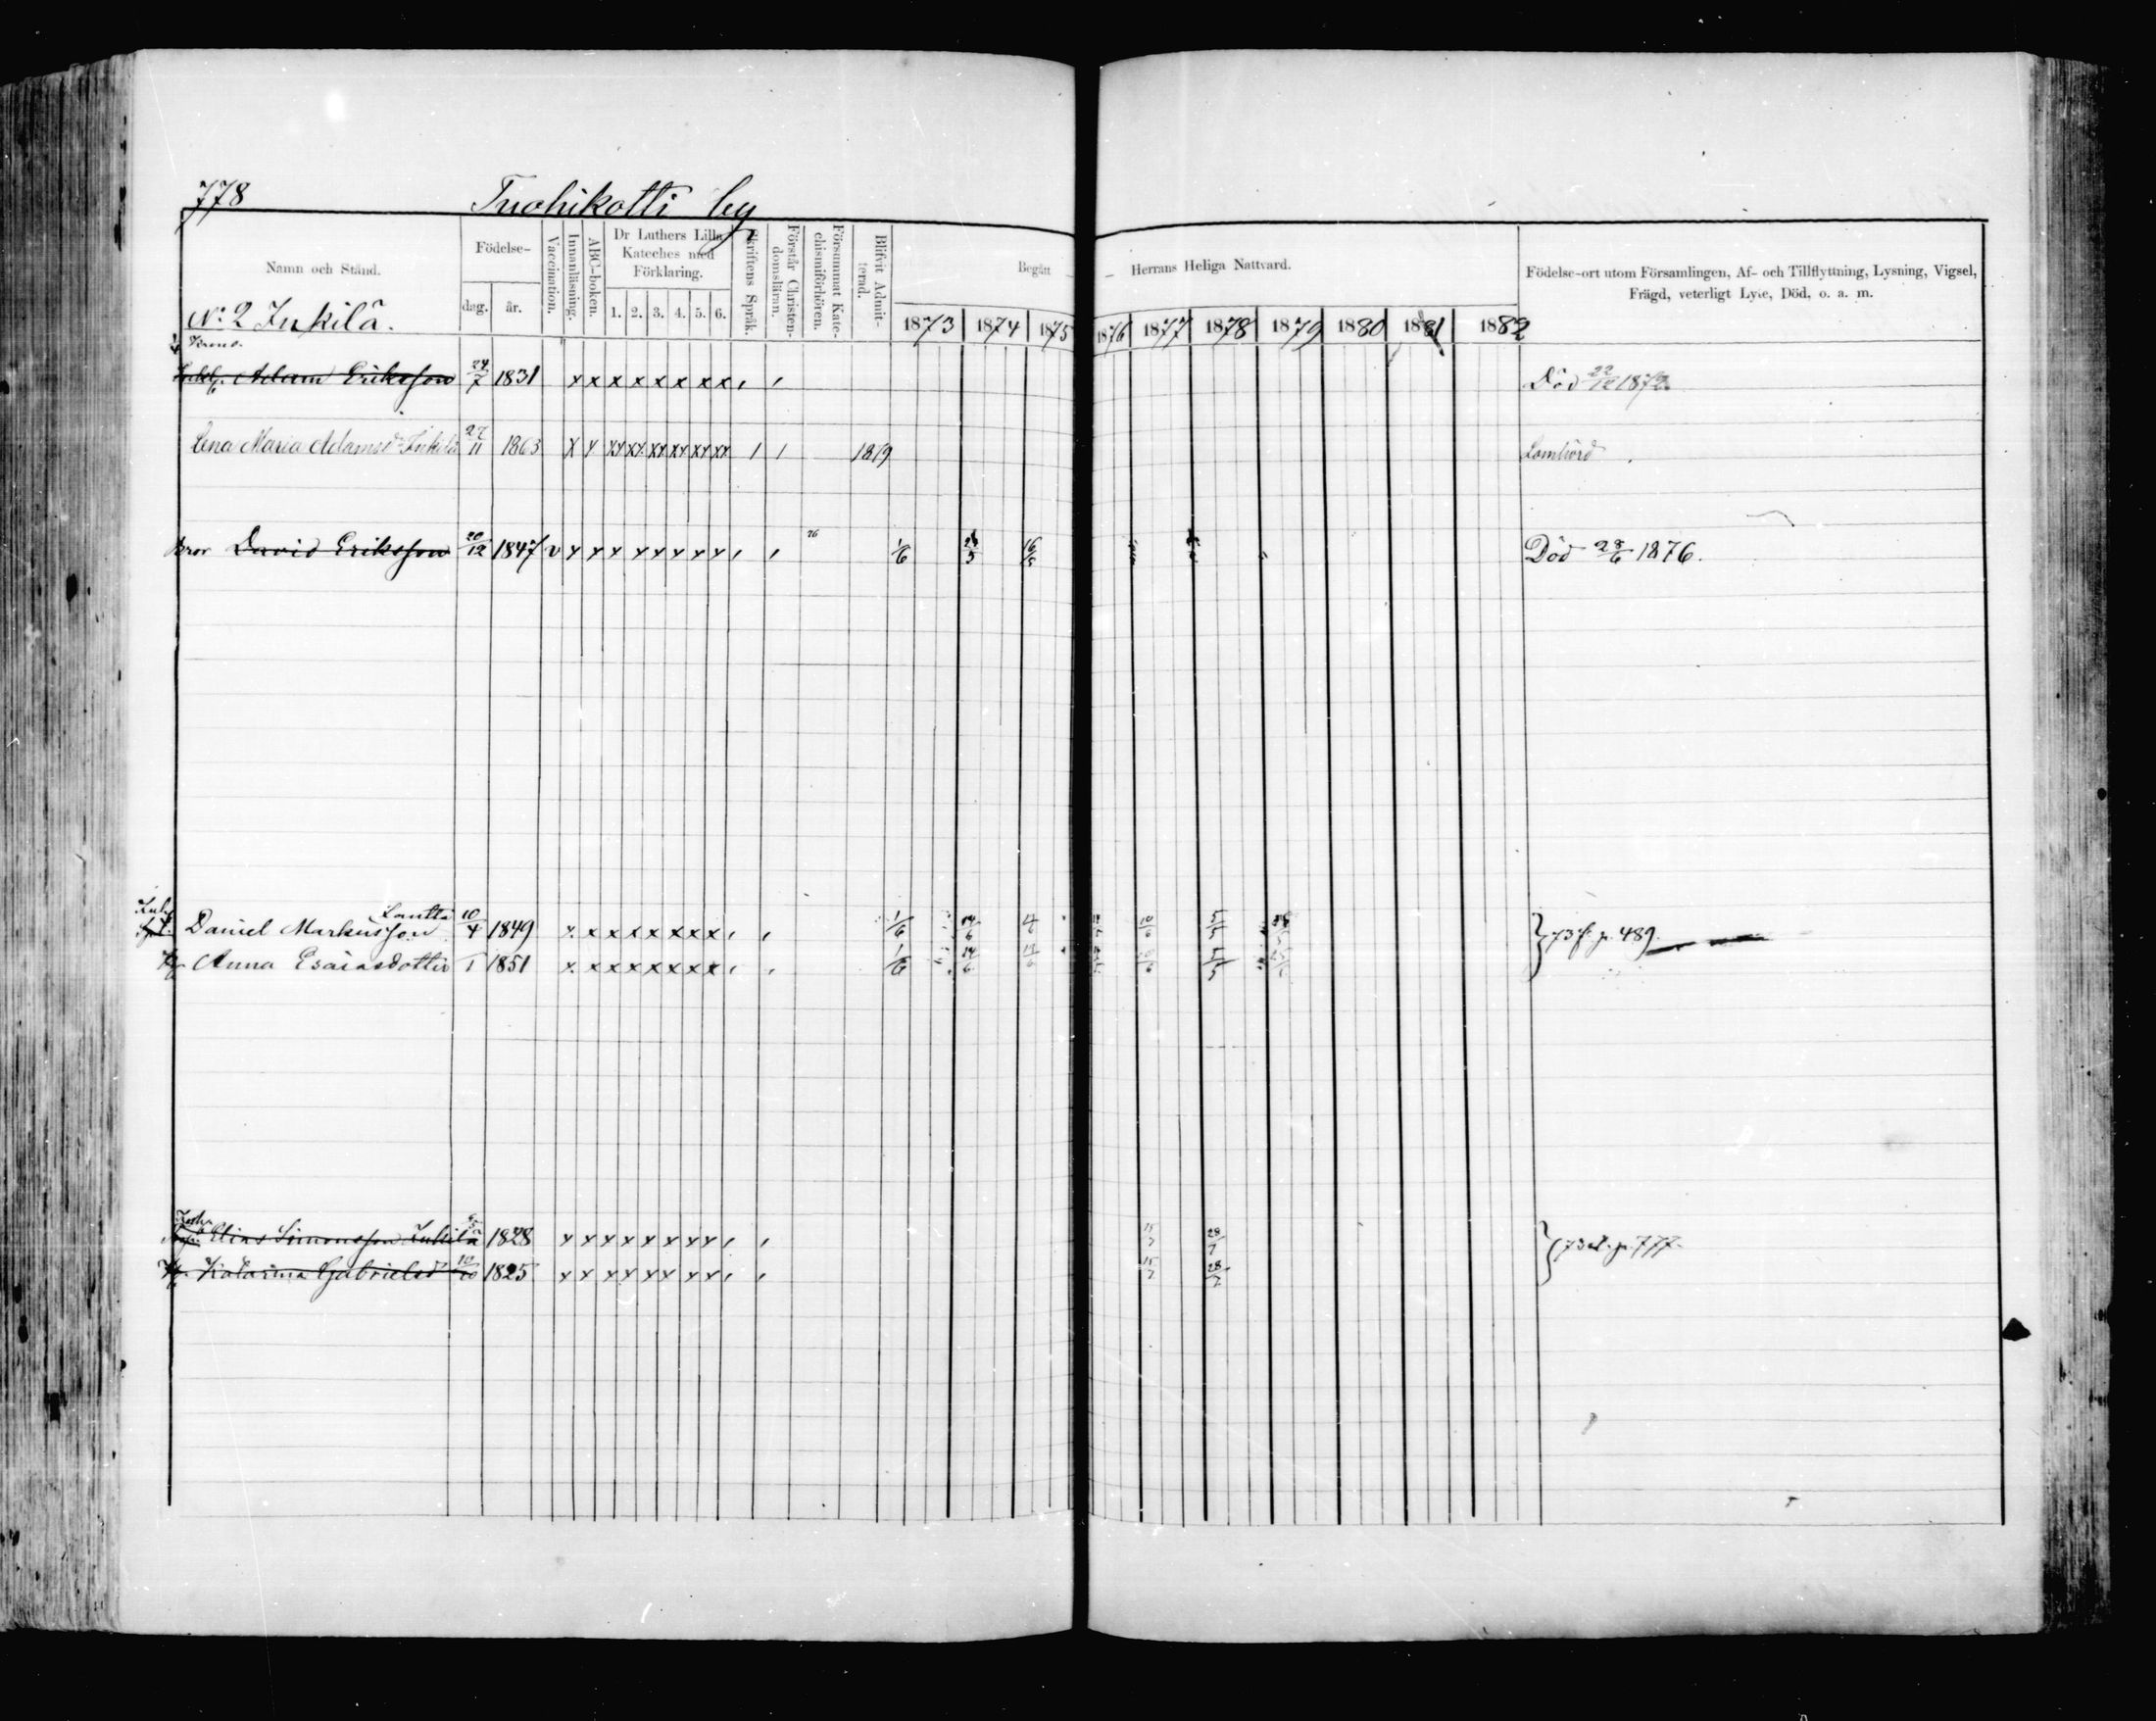 778 Tuohikotti by
Namn och Stånd.
Födelse-
dag. år.
Vaccination.
Innanläsning.
ABC-boken.
Dr Luthers Lilla
Kateches med
Förklaring.
1. 2. 3. 4. 5. 6.
Skriftens Språk.
Förstår Christen-
domsläran.
Försummat Kate-
chismiförhören.
Blifvit Admit-
terad.
Begått — Herrans Heliga Nattvard.
1873 1874 1875 1876 1877 1878 1879 1880 1881 1882
Födelse-ort utom Församlingen, Af- och Tillflyttning, Lysning, Vigsel,
Frägd, veterligt Lyte, Död, o. a. m.
No 2 Inkilä.
Adam Eriksson 24/7 1831 x x x x x x x x Död 22/12 1872
Lena Maria Adamsdr Inkilä 27/11 1863 1879 Lomhörd
Bror David Eriksson 20/12 1847 v x x x x x x x x 76 1/6 Död 28/6 1876.
Lantta
Daniel Markusson 10/4 1849 x x x x x x x x 1/6 14/6 } 73 f. p. 489.
Anna Esaiasdotter 1851 x x x x x x x x 1/6 14/6
Elias Simonsson Inkilä 1828 x x x x x x x x 15/7 28/7 } 73 p. 777.
Katarina Gabrielsd 1825 x x x x x x x x 15/7 28/7